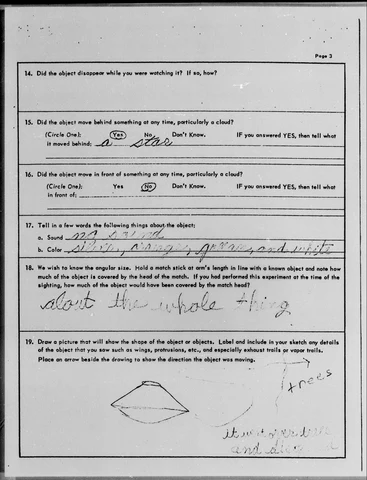 Page 3
14. Did the object disappear while you were watching it? If so, how?
15. Did the object move behind something at any time, particularly a cloud?
(Circle One): Yes No Don't Know. IF you answered YES, then tell what
it moved behind: a star
16. Did the object move in front of something at any time, particularly a cloud?
(Circle One): Yes No Don't Know. IF you answered YES, then tell what
in front of:
17. Tell in a few words the following things about the object:
a. Sound no sound
b. Color silver, orange, green, and white
18. We wish to know the angular size. Hold a match stick at arm's length in line with a known object and note how
much of the object is covered by the head of the match. If you had performed this experiment at the time of the
sighting, how much of the object would have been covered by the match head?
about the whole thing
19. Draw a picture that will show the shape of the object or objects. Label and include in your sketch any details
of the object that you saw such as wings, protrusions, etc., and especially exhaust trails or vapor trails.
Place an arrow beside the drawing to show the direction the object was moving.
trees
it went over tree
and